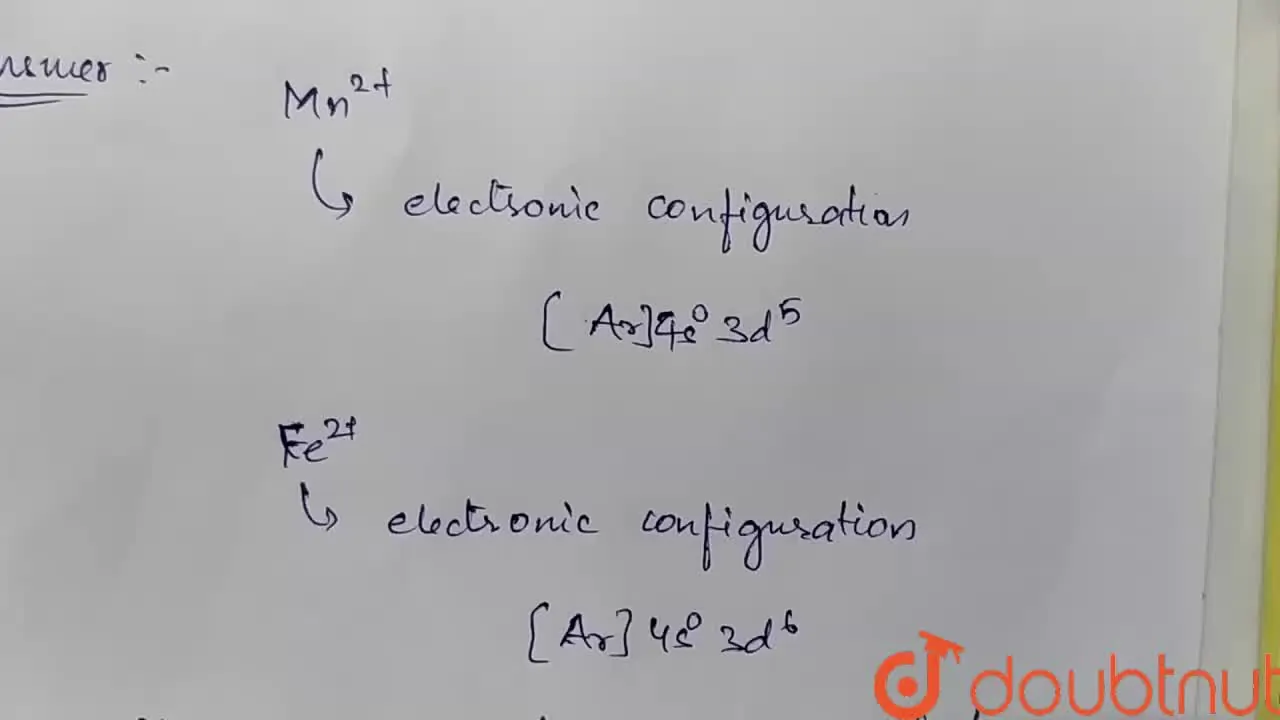 Answer :-
Mn²⁺
↳ electronic configuration
[Ar] 4s⁰ 3d⁵
Fe²⁺
↳ electronic configuration
[Ar] 4s⁰ 3d⁶
doubtnut